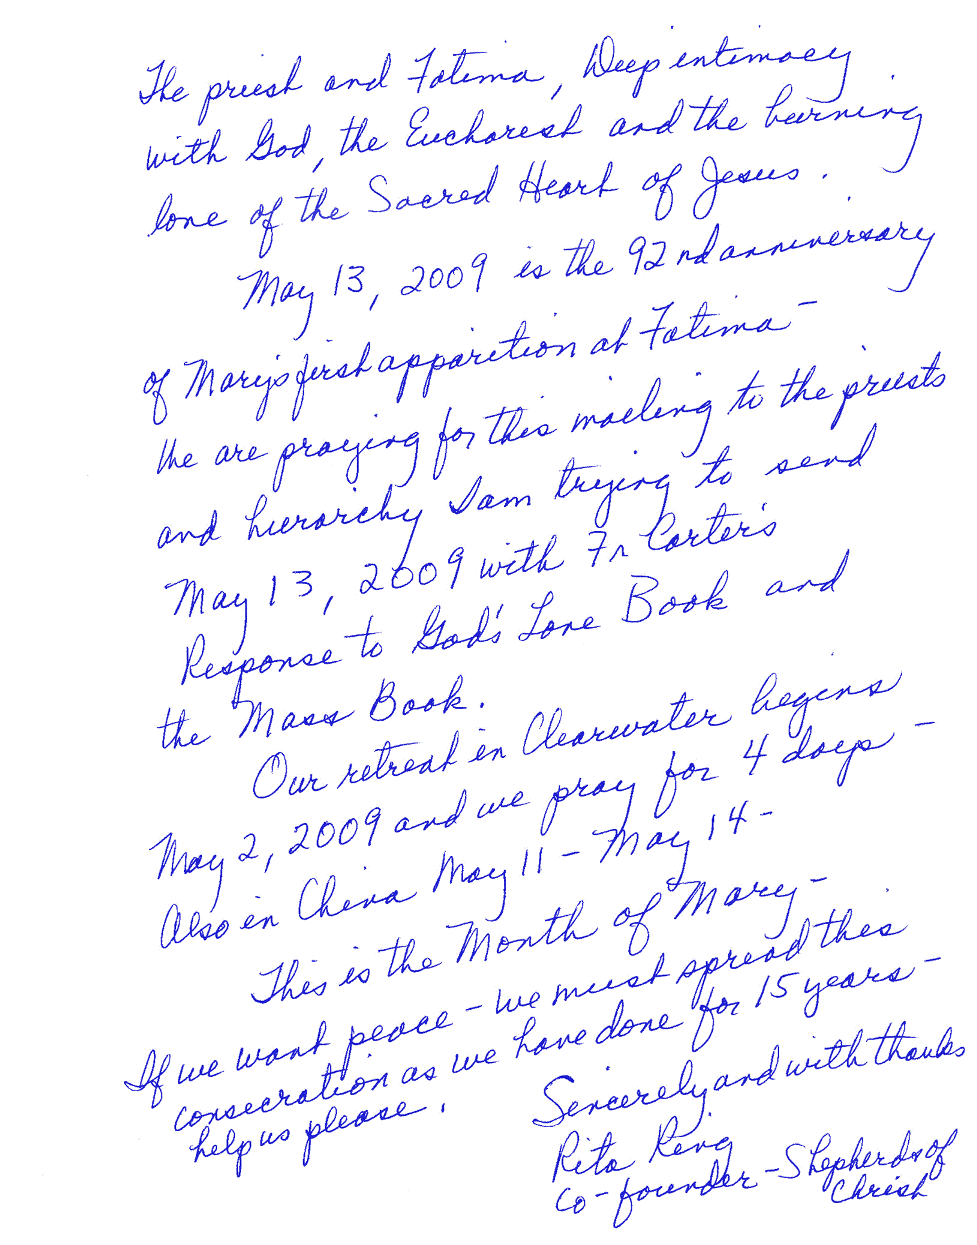 The priest and Fatima, Deep intimacy
with God, the Eucharist and the burning
love of the Sacred Heart of Jesus.
May 13, 2009 is the 92nd anniversary
of Mary's first apparition at Fatima -
We are praying for this mailing to the priests
and hierarchy I am trying to send
May 13, 2009 with Fr Carter's
Response to God's Love Book and
the Mass Book.
Our retreat in Clearwater begins
May 2, 2009 and we pray for 4 days -
Also in China May 11 - May 14 -
This is the Month of Mary -
If we want peace - we must spread this
consecration as we have done for 15 years -
help us please.
Sincerely and with thanks
Rita Ring
Co-founder - Shepherds of
Christ